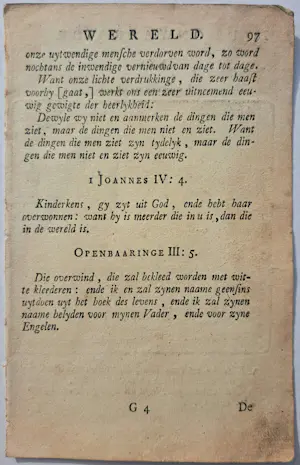 WERELD. 97
onze uytwendige mensche verdorven word, zo word
nochtans de inwendige vernieuwd van dage tot dage.
Want onze lichte verdrukkinge, die zeer haast
voorby [gaat,] werkt ons een zeer uitneemend eeu-
wig gewigte der heerlykheid:
Dewyle wy niet en aanmerken de dingen die men
ziet, maar de dingen die men niet en ziet. Want
de dingen die men ziet zyn tydelyk, maar de din-
gen die men niet en ziet zyn eeuwig.
1 JOANNES IV: 4.
Kinderkens, gy zyt uit God, ende hebt haar
overwonnen: want hy is meerder die in u is, dan die
in de wereld is.
OPENBAARINGE III: 5.
Die overwind, die zal bekleed worden met wit-
te kleederen: ende ik en zal zynen naame geensins
uytdoen uyt het boek des levens, ende ik zal zynen
naame belyden voor mynen Vader, ende voor zyne
Engelen.
G 4 De